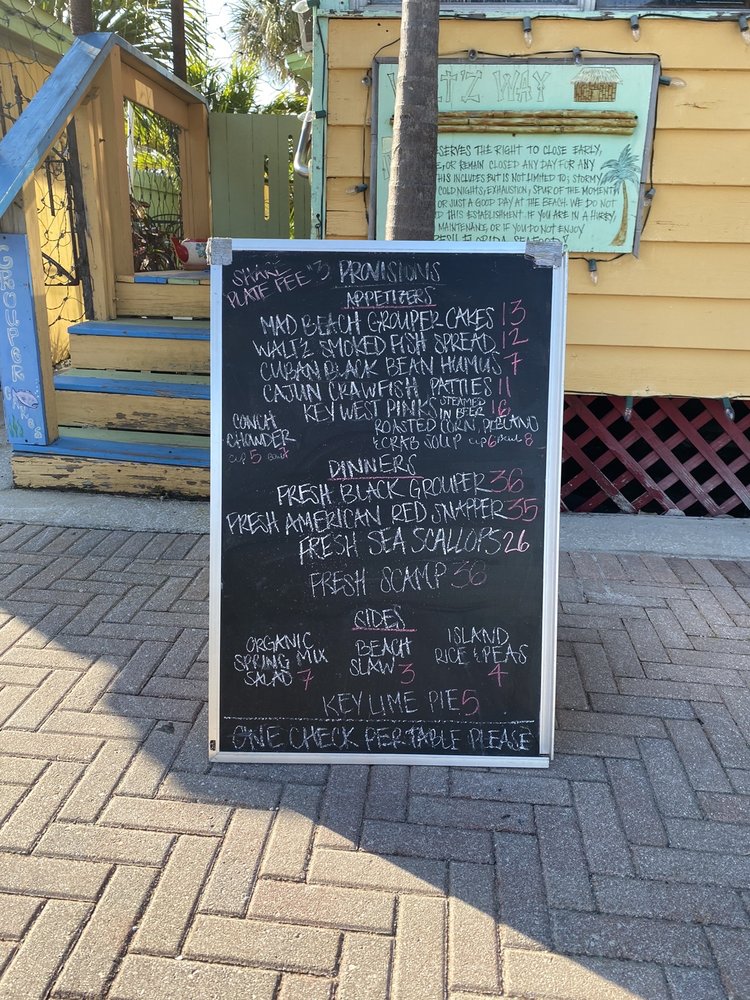 WALT'Z WAY
RESERVES THE RIGHT TO CLOSE EARLY,
OR REMAIN CLOSED ANY DAY FOR ANY
THIS INCLUDES BUT IS NOT LIMITED TO; STORMY
COLD NIGHTS, EXHAUSTION, SPUR OF THE MOMENT
OR JUST A GOOD DAY AT THE BEACH. WE DO NOT
THIS ESTABLISHMENT. IF YOU ARE IN A HURRY,
MAINTENANCE, OR IF YOU DO NOT ENJOY
FRESH FLORIDA SEAFOOD!
GROUPER
SHARE
PLATE FEE $3
PROVISIONS
APPETIZERS
MAD BEACH GROUPER CAKES 13
WALT'Z SMOKED FISH SPREAD 12
CUBAN BLACK BEAN HUMUS 7
CAJUN CRAWFISH PATTIES 11
KEY WEST PINKS STEAMED IN BEER 16
CONCH
CHOWDER
CUP 5 BOWL 7
ROASTED CORN, POBLANO
& CRAB SOUP CUP 6 BOWL 8
DINNERS
FRESH BLACK GROUPER 36
FRESH AMERICAN RED SNAPPER 35
FRESH SEA SCALLOPS 26
FRESH SCAMP 38
SIDES
ORGANIC
SPRING MIX
SALAD 7
BEACH
SLAW 3
ISLAND
RICE & PEAS
4
KEY LIME PIE 5
ONE CHECK PER TABLE PLEASE